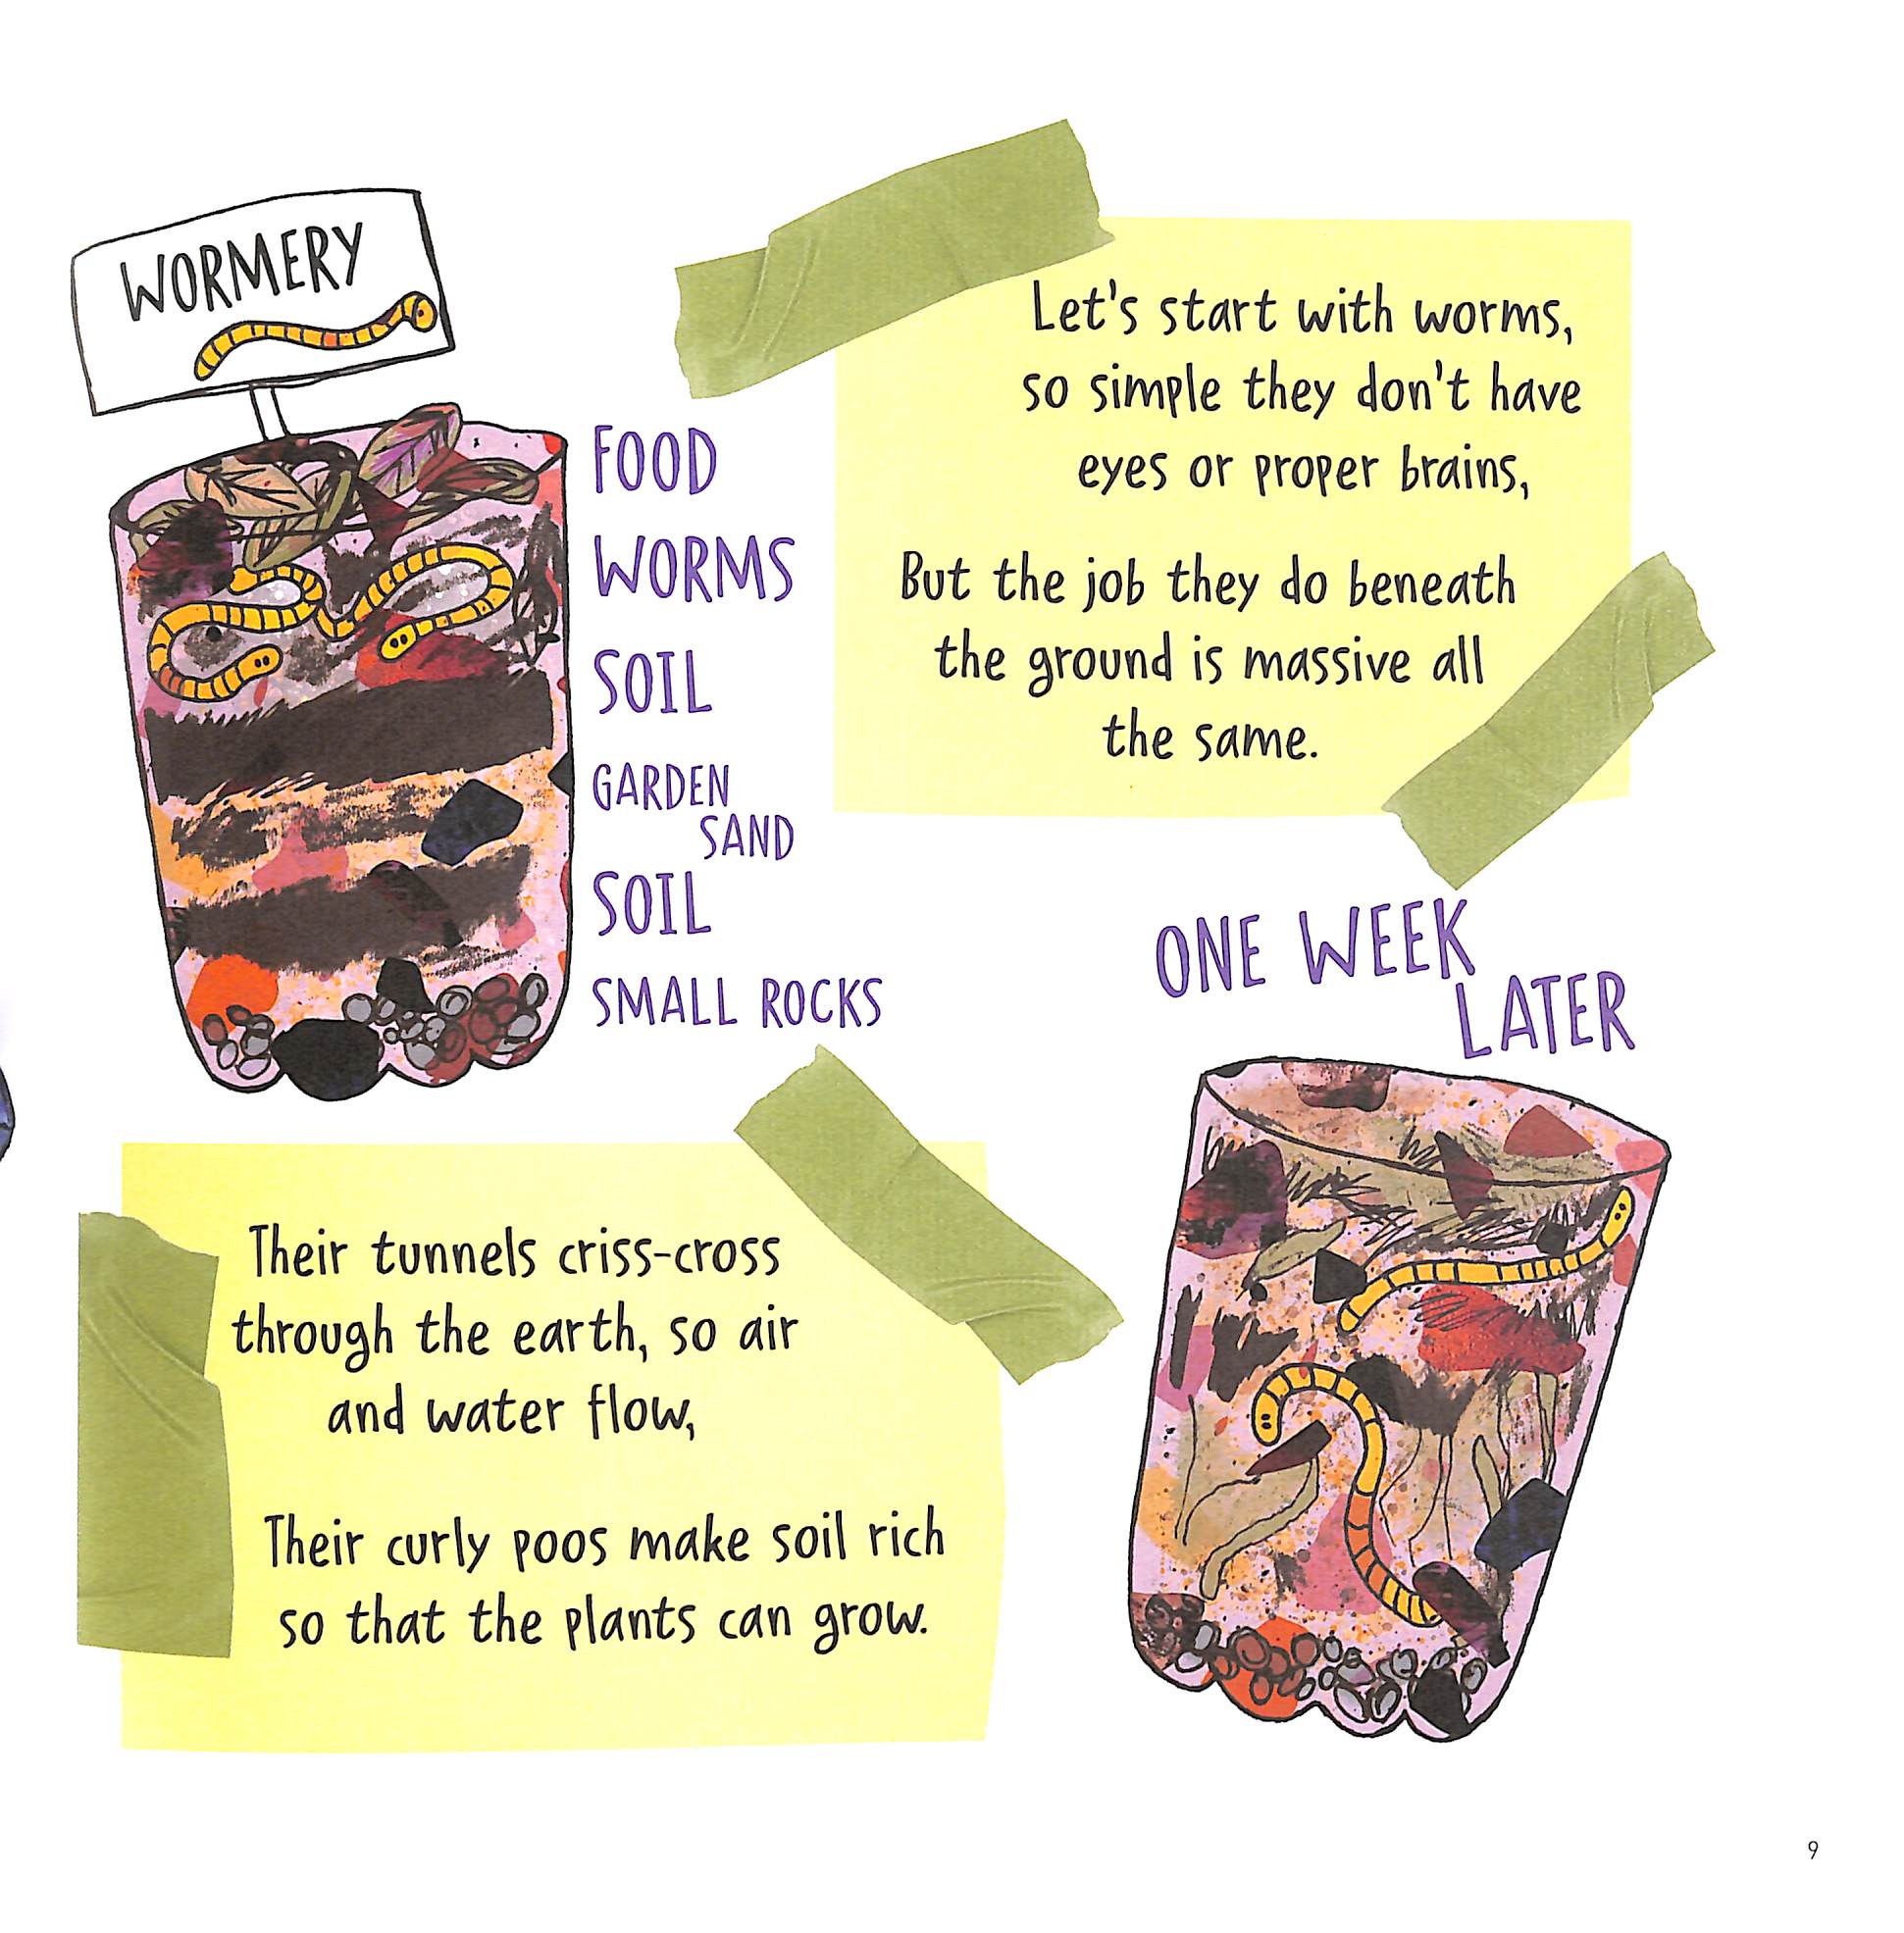 WORMERY
FOOD
WORMS
SOIL
GARDEN
SAND
SOIL
SMALL ROCKS
Let's start with worms,
so simple they don't have
eyes or proper brains,
But the job they do beneath
the ground is massive all
the same.
ONE WEEK
LATER
Their tunnels criss-cross
through the earth, so air
and water flow,
Their curly poos make soil rich
so that the plants can grow.
9